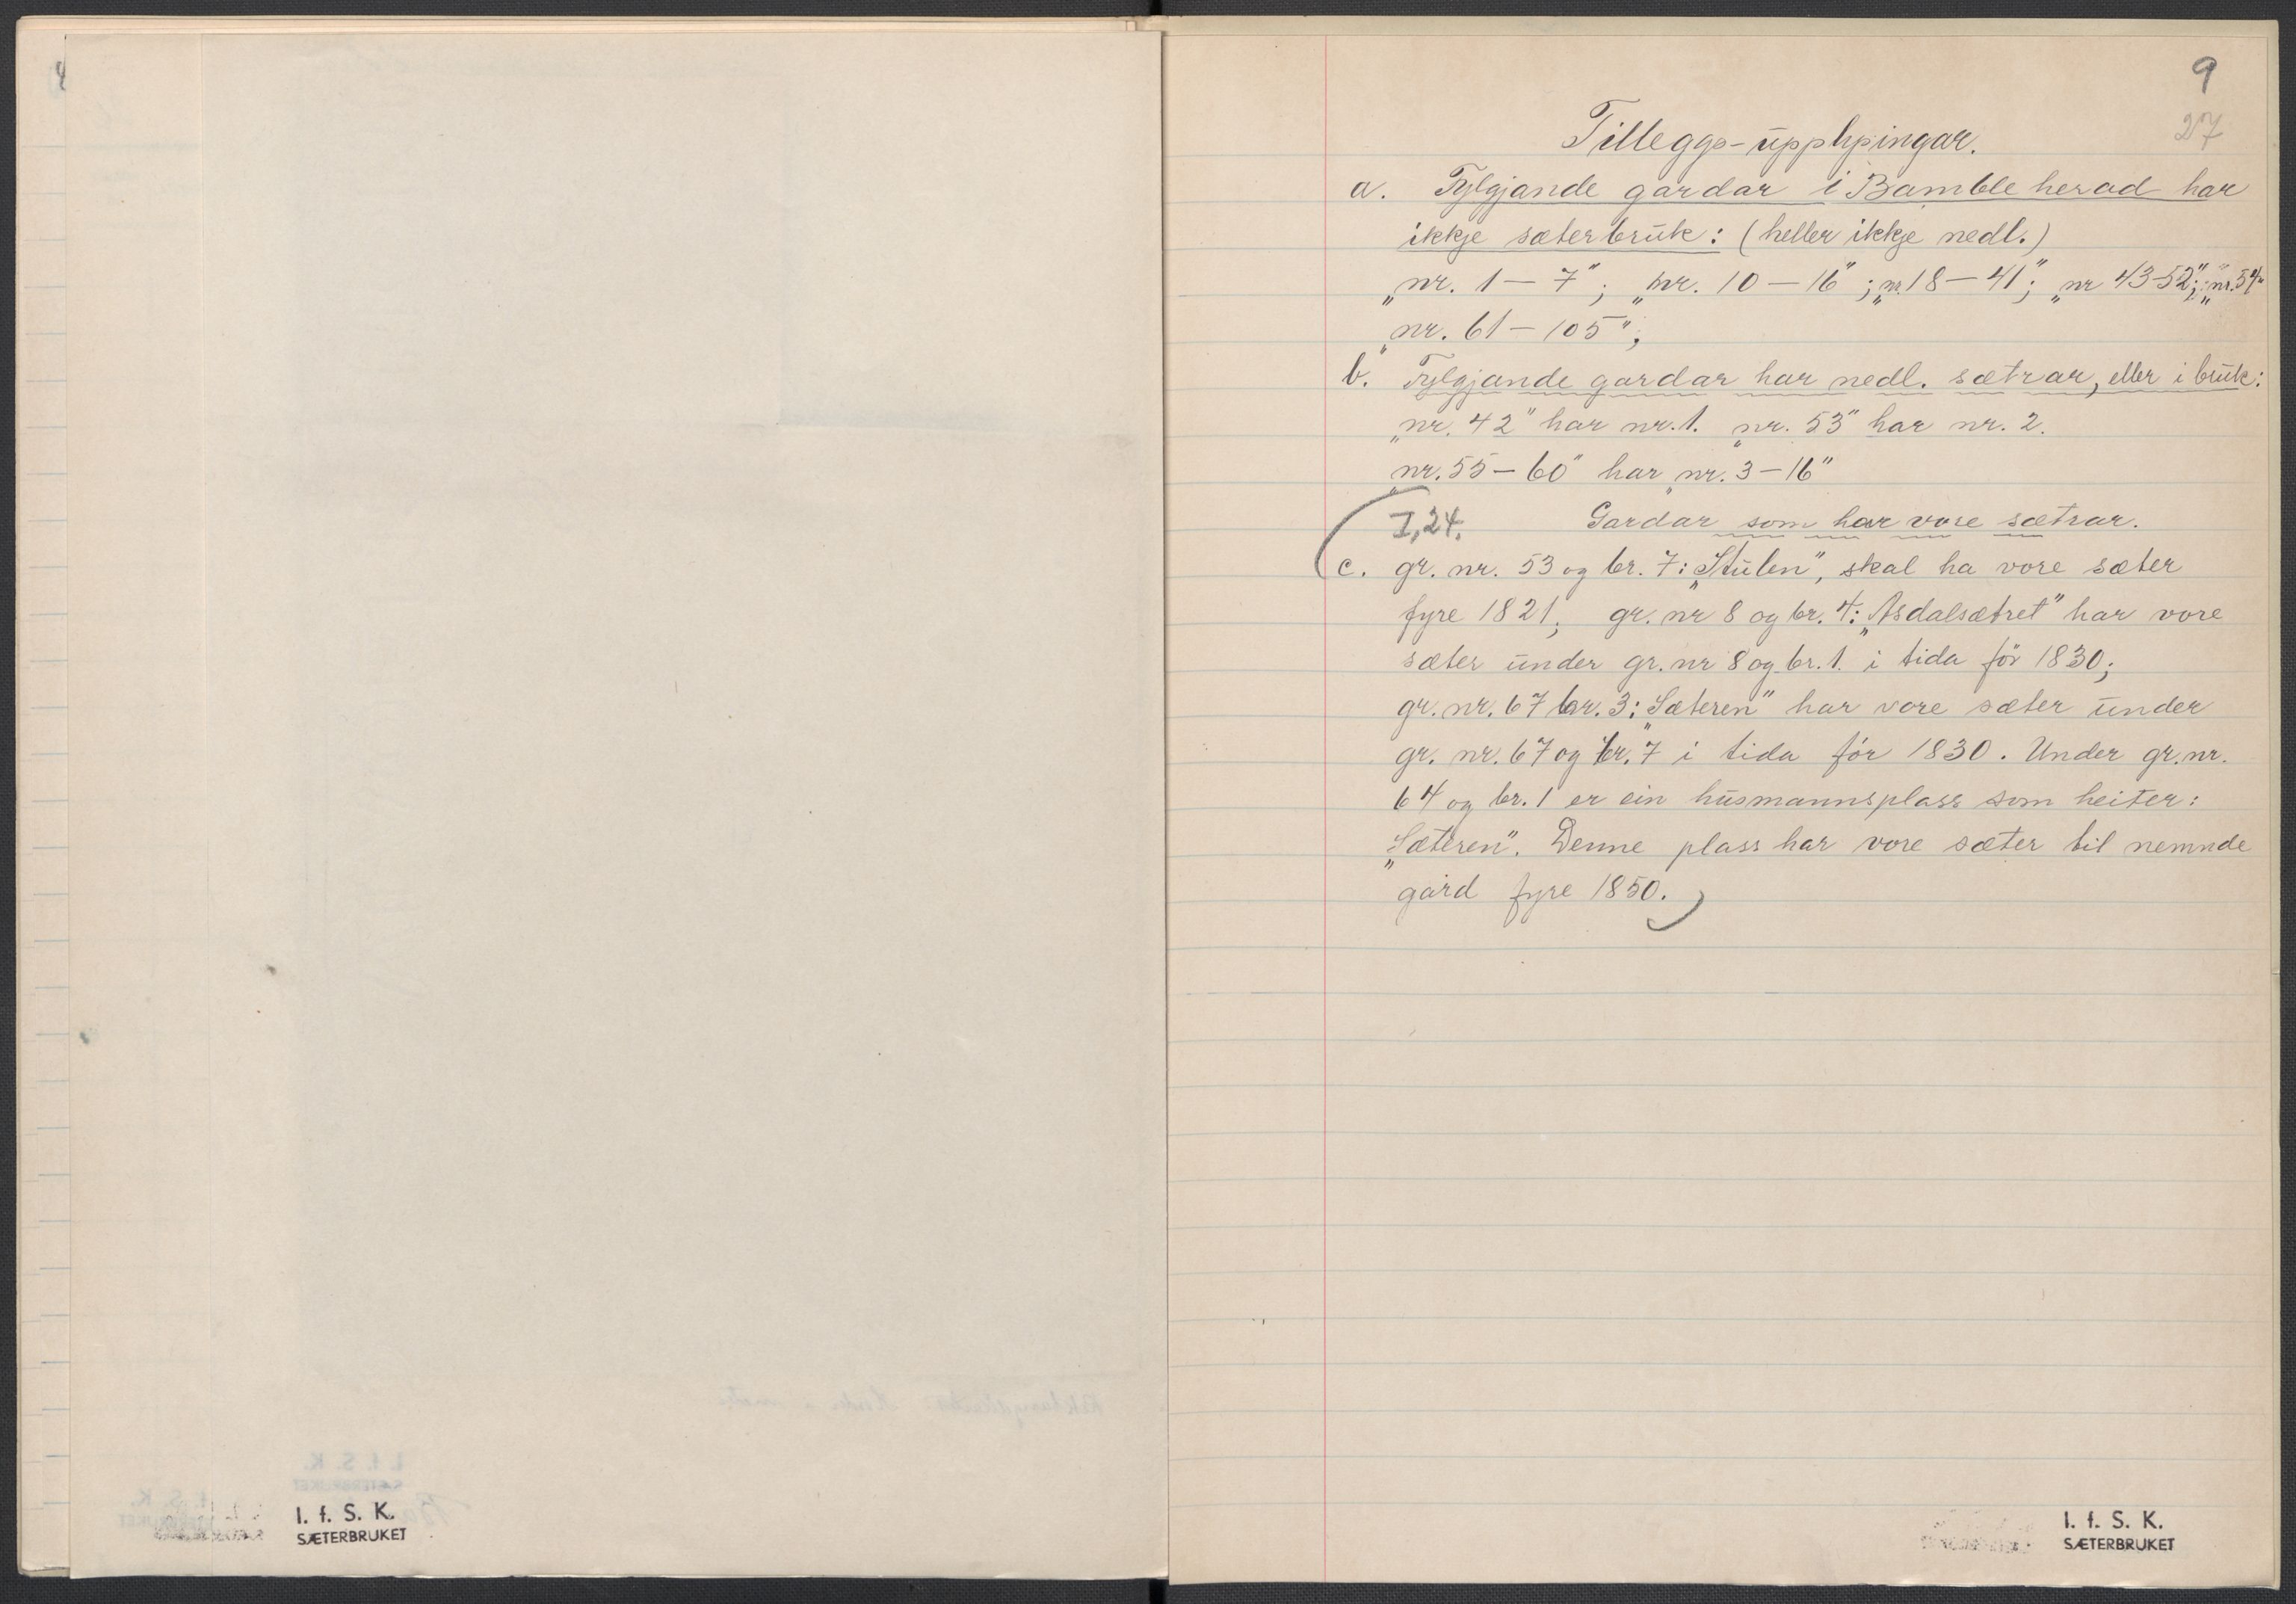 9
27
Tilleggs-upplysingar.
a. Fylgjande gardar i Bamble herad har
ikkje sæterbruk: (heller ikkje nedl.)
„nr. 1 — 7"; „nr. 10 — 16"; „nr. 18 — 41"; „nr 43-52"; „nr. 54"
„nr. 61 — 105";
b. Fylgjande gardar har nedl. sætrar, eller i bruk:
„nr. 42" har nr. 1. „nr. 53" har nr. 2.
„nr. 55 — 60" har „nr. 3 — 16"
I, 24. Gardar som har vore sætrar.
c. gr. nr. 53 og br. 7: „Stulen", skal ha vore sæter
fyre 1821; gr. nr 8 og br. 4: „Asdalsætret" har vore
sæter under gr. nr 8 og br. 1. i tida før 1830;
gr. nr. 67 br. 3: „Sæteren" har vore sæter under
gr. nr. 67 og br. 7 i tida før 1830. Under gr. nr.
64 og br. 1 er ein husmannsplass som heiter:
„Sæteren". Denne plass har vore sæter til nemnde
gård fyre 1850.
I. f. S. K.
SÆTERBRUKET
I. f. S. K.
SÆTERBRUKET